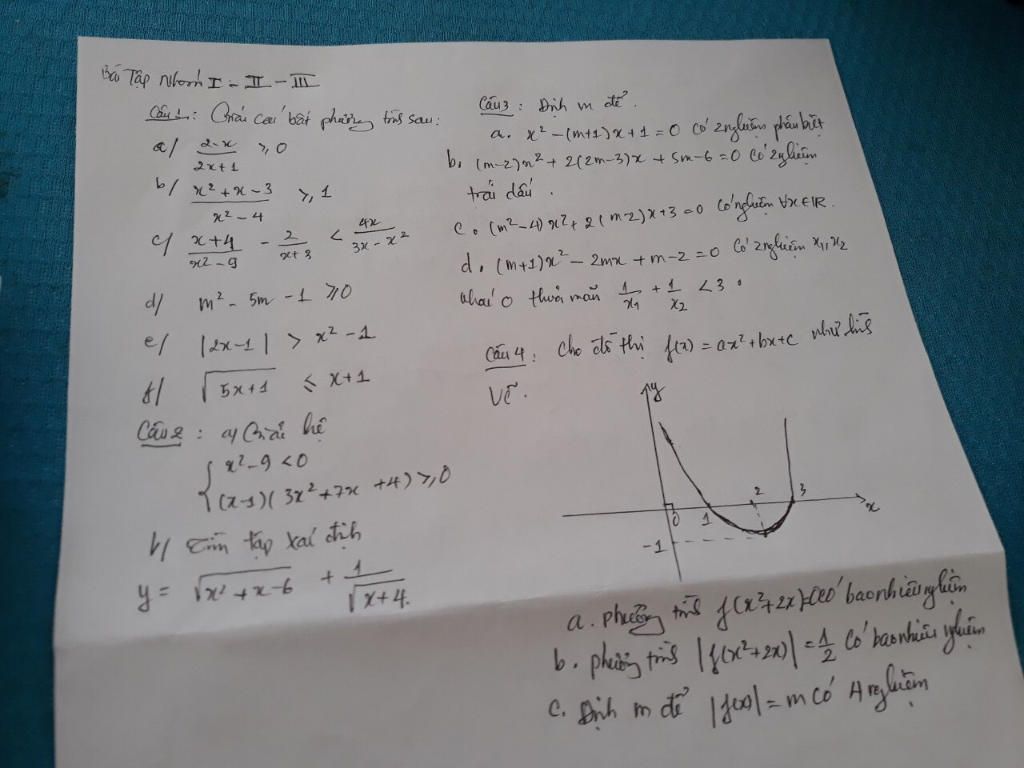 Bài Tập Nhóm I - II - III
Câu 1: Giải các bất phương trình sau:
a/ (2-x)/(2x+1) ≥ 0
b/ (x²+x-3)/(x²-4) ≥ 1
c/ (x+4)/(x²-9) - 2/(x+3) < 4x/(3x-x²)
d/ m² - 5m - 1 ≥ 0
e/ |2x-1| > x²-1
f/ √(5x+1) ≤ x+1
Câu 2: a/ Giải hệ
{ x²-9 < 0
(x-1)(3x²+7x+4) ≥ 0
b/ Tìm tập xác định
y = √(x²+x-6) + 1/√(x+4)
Câu 3: Định m để.
a. x² - (m+1)x + 1 = 0 có 2 nghiệm phân biệt
b. (m-2)x² + 2(2m-3)x + 5m-6 = 0 có 2 nghiệm
trái dấu.
c. (m²-4)x² + 2(m-2)x + 3 = 0 có nghiệm ∀x∈ℝ.
d. (m+1)x² - 2mx + m-2 = 0 có 2 nghiệm x₁, x₂
khác 0 thoả mãn 1/x₁ + 1/x₂ < 3.
Câu 4: Cho đồ thị f(x) = ax²+bx+c như hình
vẽ.
y
0 1 2 3 x
-1
a. phương trình f(x²+2x)=0 có bao nhiêu nghiệm
b. phương trình |f(x²+2x)| = 1/2 có bao nhiêu nghiệm
c. Định m để |f(x)| = m có 4 nghiệm